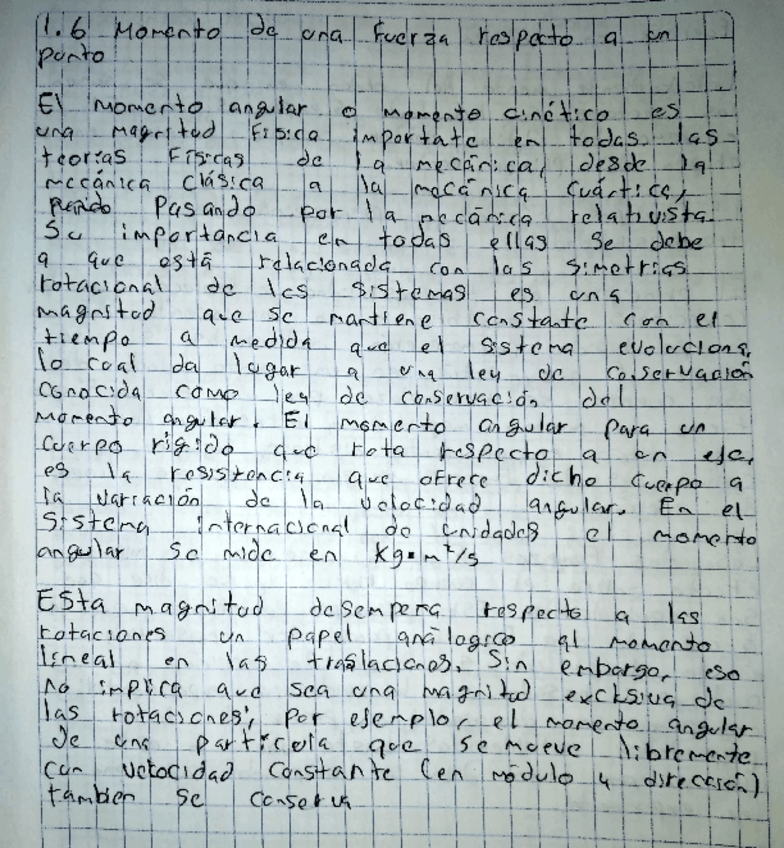 1.6 Momento de una fuerza respecto a un
punto
El momento angular o momento cinético es
una magnitud física importate en todas las
teorías físicas de la mecánica, desde la
mecánica clásica a la mecánica cuántica,
pasando por la mecánica relativista.
Su importancia en todas ellas se debe
a que está relacionada con las simetrias
rotacional de los sistemas es una
magnitud que se mantiene constante con el
tiempo a medida que el sistema evoluciona,
lo cual da lugar a una ley de conservación
conocida como ley de conservación del
momento angular. El momento angular para un
cuerpo rígido que rota respecto a un eje,
es la resistencia que ofrece dicho cuerpo a
la variación de la velocidad angular. En el
sistema internacional de unidades el momento
angular se mide en Kg·m²/s
Esta magnitud desempeña respecto a las
rotaciones un papel análogico al momento
lineal en las traslaciones. Sin embargo, eso
no implica que sea una magnitud exclsiva de
las rotaciones; por ejemplo, el momento angular
de una partícula que se mueve libremente
con velocidad constante (en módulo y dirección)
tambien se conserva